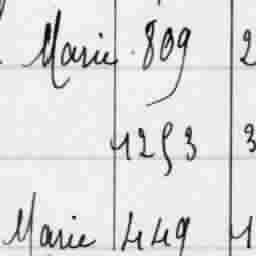 Marie 809 2
1253 3
Marie 449 1